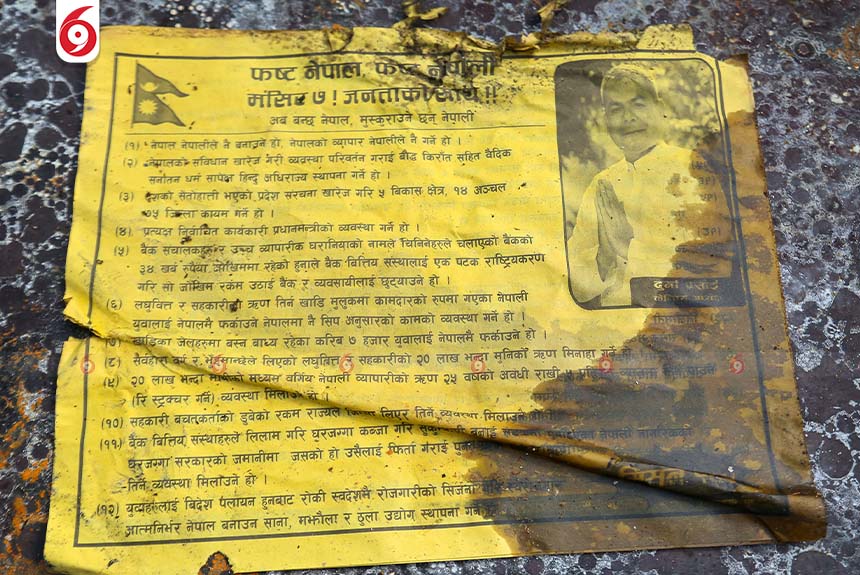 फष्ट नेपाल, फष्ट नेपाली
मंसिर ७ ! जनताको साथ !!
अब बन्छ नेपाल, मुस्कुराउने छन् नेपाली
(१) नेपाल नेपालीले नै बनाउने हो, नेपालको व्यापार नेपालीले नै गर्ने हो ।
(२) नेपालको संविधान खारेज गरी व्यवस्था परिवर्तन गराई बौद्ध किराँत सहित वैदिक
सनातन धर्म सापेक्ष हिन्दु अधिराज्य स्थापना गर्ने हो ।
(३) देशको सेतोहात्ती भएको प्रदेश संरचना खारेज गरि ५ बिकास क्षेत्र, १४ अञ्चल
७५ जिल्ला कायम गर्ने हो ।
(४) प्रत्यक्ष निर्वाचित कार्यकारी प्रधानमन्त्रीको व्यवस्था गर्ने हो ।
(५) बैंक संचालकहरु र उच्च व्यापारीक घरानियाको नामले चिनिनेहरुले चलाएको बैंकको
३४ खर्ब रुपैया जोखिममा रहेको हुनाले बैंक वित्तिय संस्थालाई एक पटक राष्ट्रियकरण
गरि सो जोखिम रकम उठाई बैंक र व्यवसायीलाई छुट्याउने हो ।
(६) लघुवित्त र सहकारीको ऋण तिर्न खाडि मुलुकमा कामदारको रुपमा गएका नेपाली
युवालाई नेपालमै फर्काउने नेपालमा नै सिप अनुसारको कामको व्यवस्था गर्ने हो ।
(७) खाडीका जेलहरुमा बस्न बाध्य रहेका करिब ७ हजार युवालाई नेपालमै फर्काउने हो ।
(८) सर्वहारा वर्ग र भुईमान्छेले लिएको लघुवित्त र सहकारीको २० लाख भन्दा मुनिको ऋण मिनाहा गर्ने
(९) २० लाख भन्दा माथिको मध्यम वर्गिय नेपाली व्यापारीको ऋण २५ वर्षको अवधी राखी ५
(रि स्ट्रक्चर गर्ने) व्यवस्था मिलाउने हो ।
(१०) सहकारी बचतकर्ताको डुबेको रकम राज्यले लिएर तिर्ने व्यवस्था मिलाउने हो
(११) बैंक वित्तिय संस्थाहरुले लिलाम गरि घरजग्गा कब्जा गरि बनाई नेपाली नागरिकको
घरजग्गा सरकारको जमानीमा जसको हो उसैलाई फिर्ता गराई
तिर्ने व्यवस्था मिलाउने हो ।
(१२) युवाहरुलाई बिदेश पलायन हुनबाट रोकी स्वदेशमै रोजगारीको सिर्जना
आत्मनिर्भर नेपाल बनाउन साना, मझौला र ठुला उद्योग स्थापना गर्ने
दुर्गा प्रसाईं